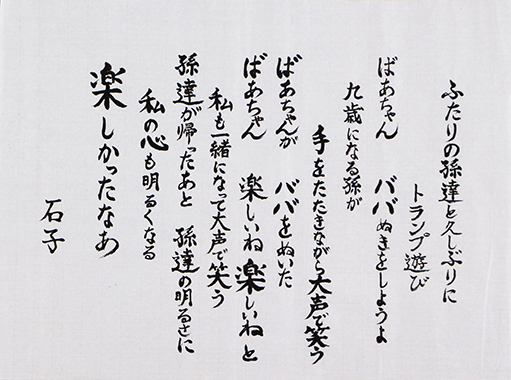 ふたりの孫達と久しぶりに
トランプ遊び
ばあちゃん　ババぬきをしようよ
九歳になる孫が
手をたたきながら大声で笑う
ばあちゃんが　ババをぬいた
ばあちゃん　楽しいね楽しいねと
私も一緒になって大声で笑う
孫達が帰ったあと　孫達の明るさに
私の心も明るくなる
楽しかったなあ
石子